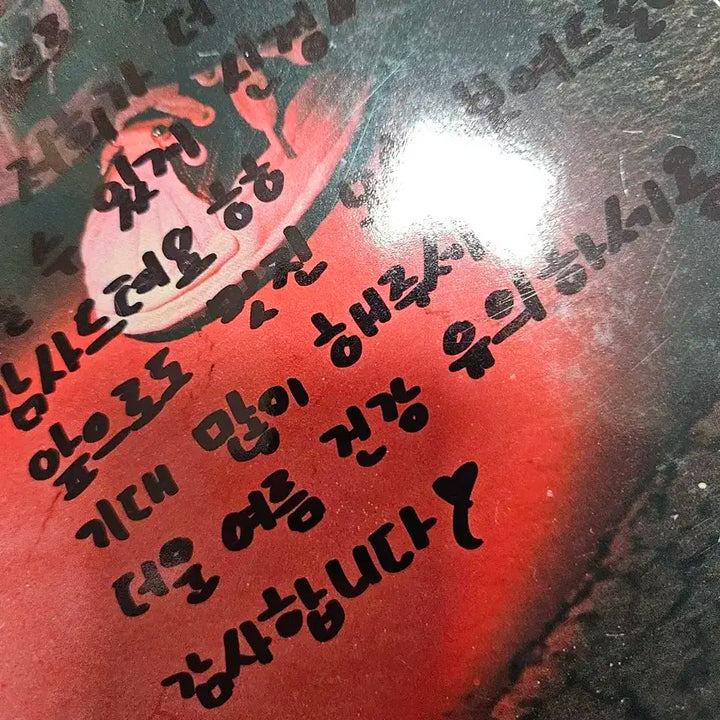 으로 더
저희가 신경
수 있게
감사드려요 흐흐
앞으로도 멋진 보여드릴
기대 많이 해주시
더운 여름 건강 유의하세요
감사합니다♡